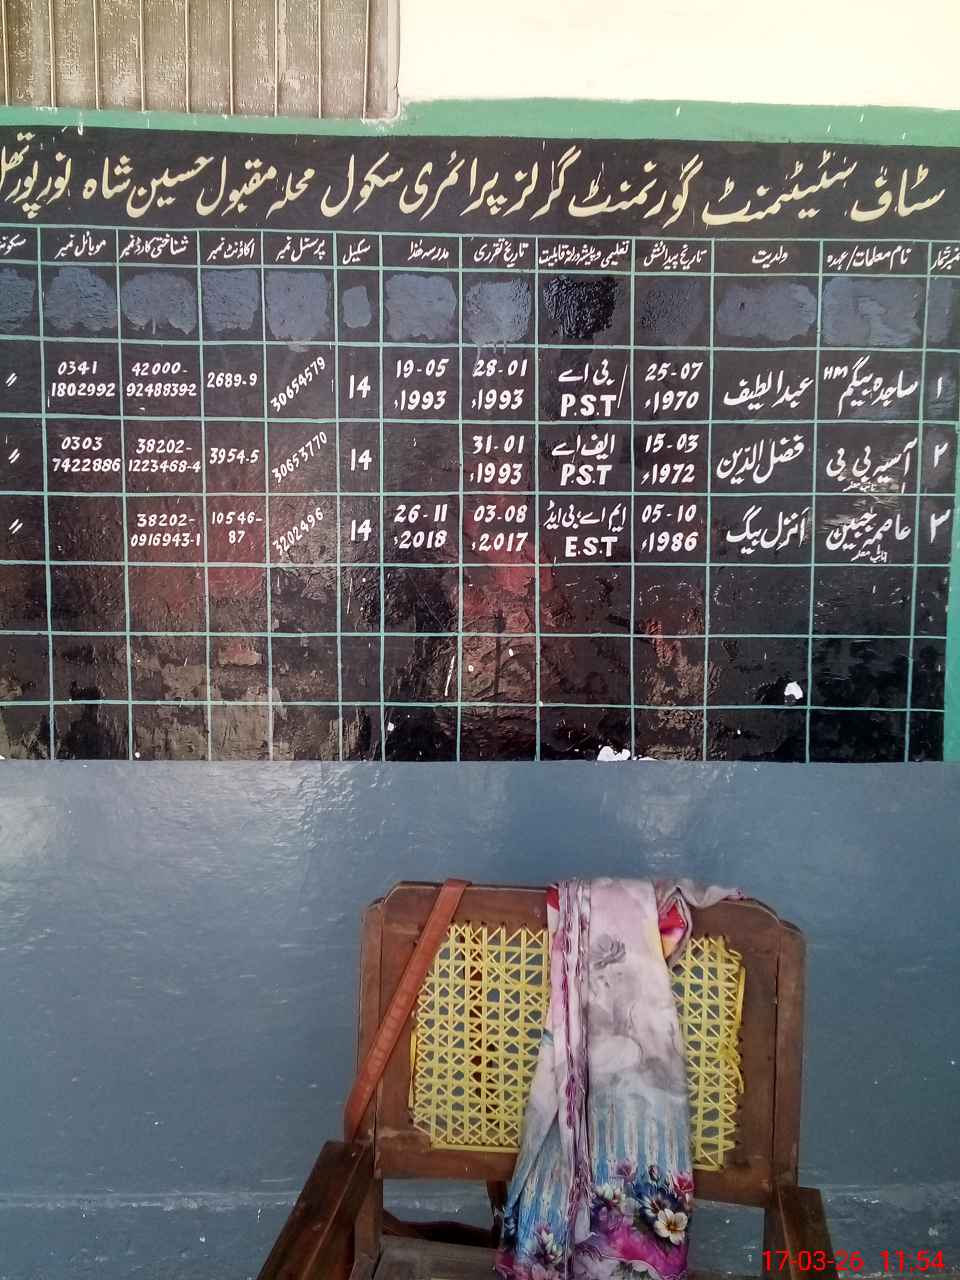 سٹاف سٹیٹمنٹ گورنمنٹ گرلز پرائمری سکول محلہ مقبول حسین شاہ نورپورتھل
نمبر شمار نام معلمات/عہدہ ولدیت تاریخ پیدائش تعلیمی و پیشہ ورانہ قابلیت تاریخ تقرری مدرسہ ھذا سکیل پرسنل نمبر اکاؤنٹ نمبر شناختی کارڈ نمبر موبائل نمبر
۱ ساجدہ بیگم HM عبدالطیف 25-07 1970ء بی اے P.S.T 28-01 1993ء 19-05 1993ء 14 30654579 2689-9 42000-92488392 0341 1802992 〃
۲ آسیہ بی بی فضل الدین 15-03 1972ء ایف اے P.S.T 31-01 1993ء 14 30653770 3954-5 38202-1223468-4 0303 7422886 〃
۳ عاصمہ جبین انزل بیگ 05-10 1986ء ایم اے، بی ایڈ E.S.T 03-08 2017ء 26-11 2018ء 14 3202496 10546-87 38202-0916943-1 〃
17-03-26 11:54